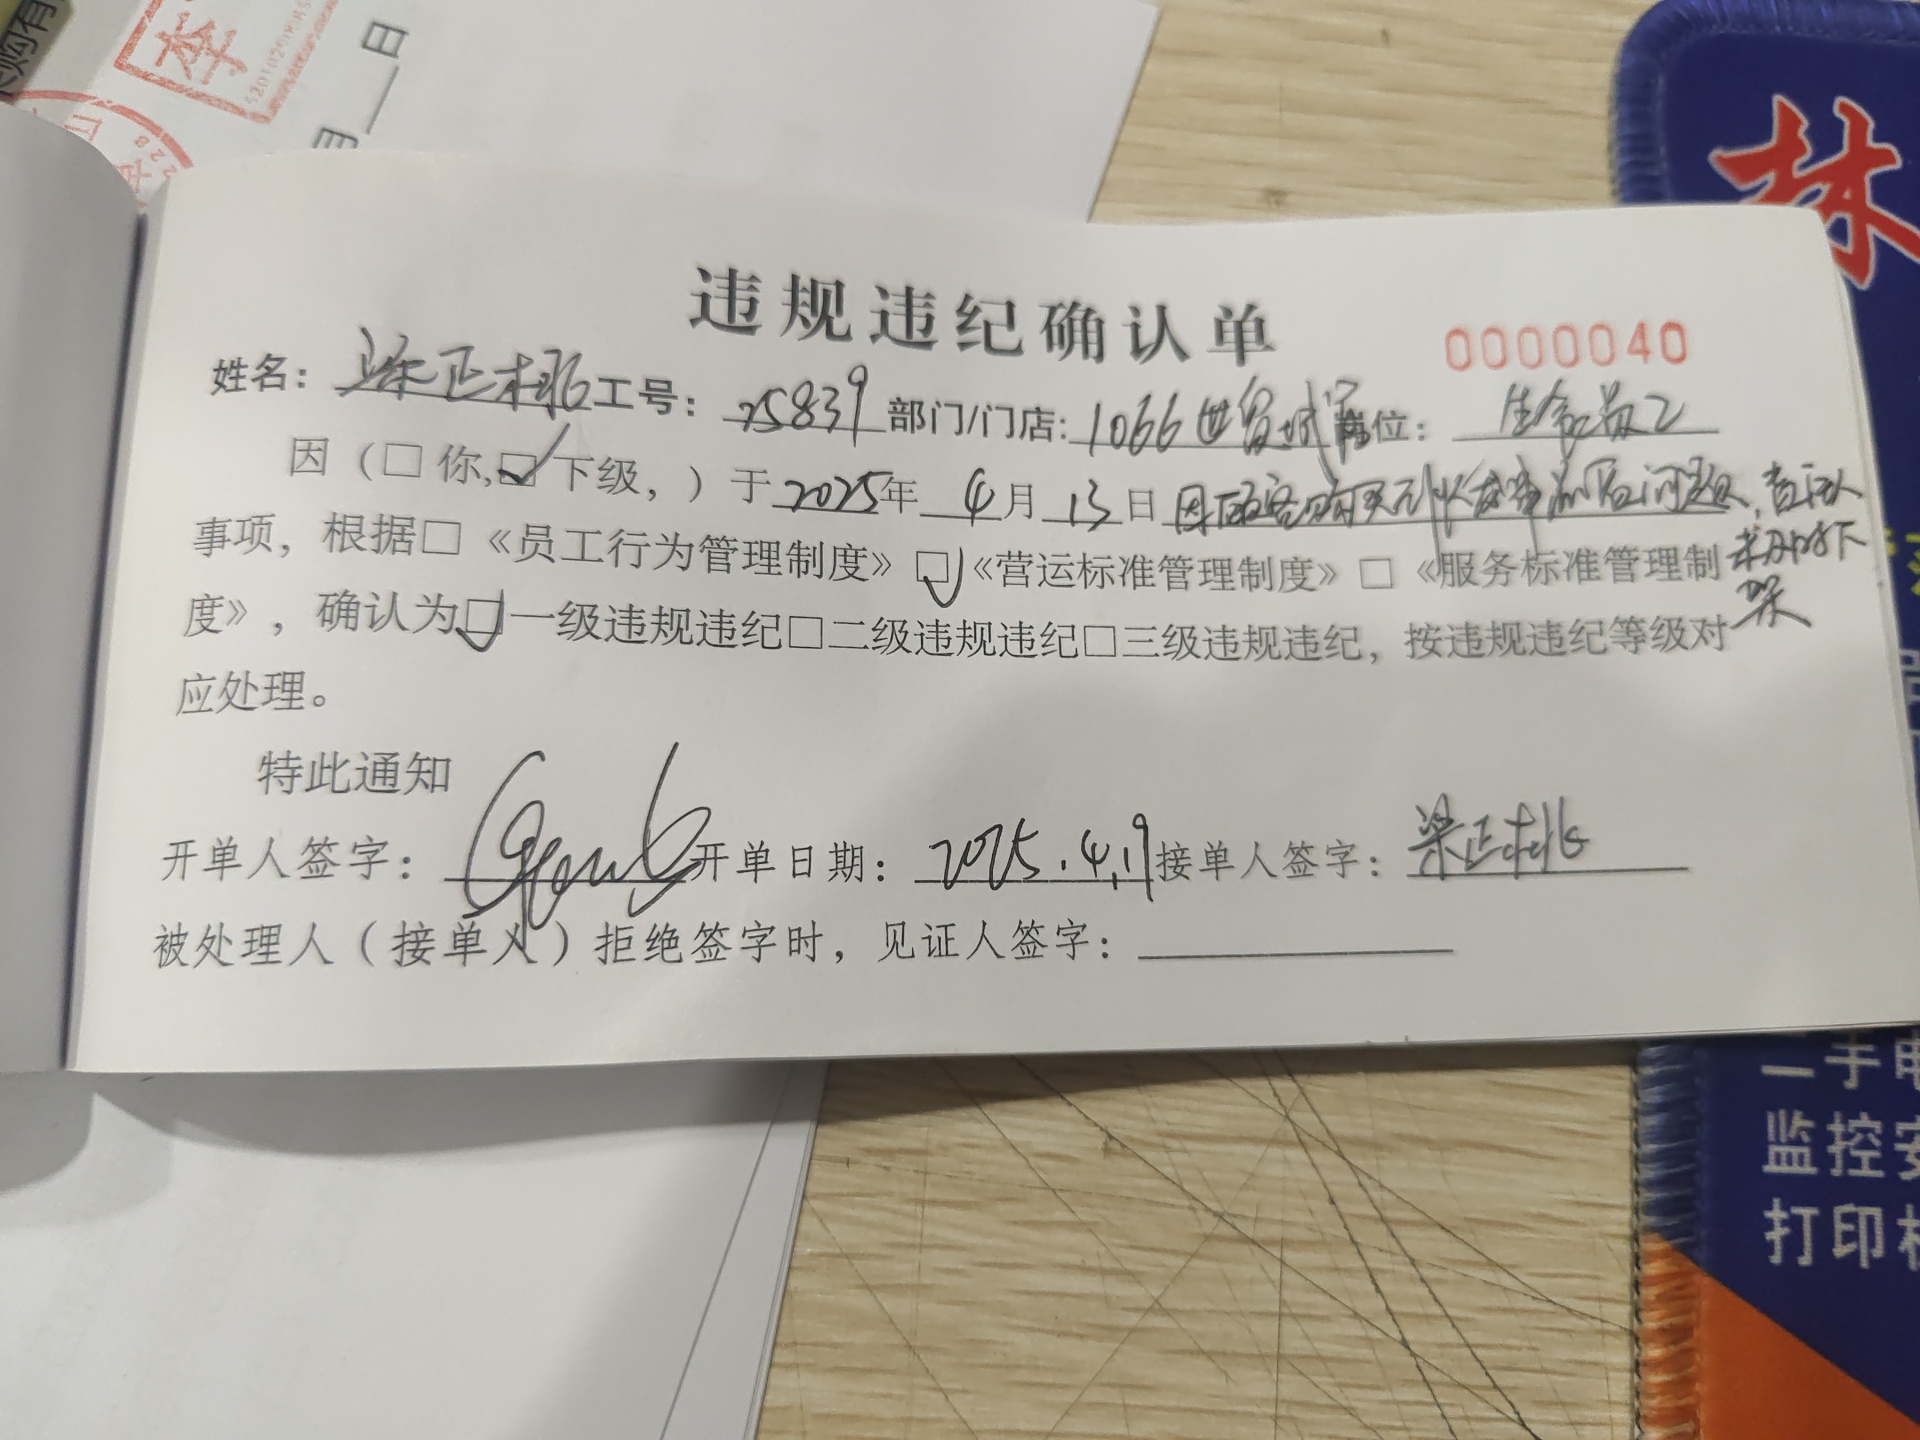 购有
李
月__日
林
违规违纪确认单
0000040
姓名：梁正桃 工号：25839 部门/门店：1066世贸城 岗位：生鲜员2
因（□你,☑下级，）于2025年4月13日因顾客购买到 质问题，
事项，根据□《员工行为管理制度》☑《营运标准管理制度》□《服务标准管理制 未及时下
度》，确认为☑一级违规违纪□二级违规违纪□三级违规违纪，按违规违纪等级对 架
应处理。
特此通知
开单人签字： 开单日期：2025.4.19 接单人签字：梁正桃
被处理人（接单人）拒绝签字时，见证人签字：
二手电
监控安
打印机